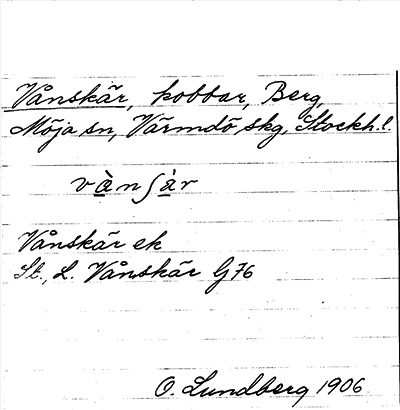 Vånskär, kobbar, Berg,
Möja sn, Värmdö skg, Stockh.l.
vànʃàr
Vånskär ek
St., L. Vånskär G76
O. Lundberg 1906